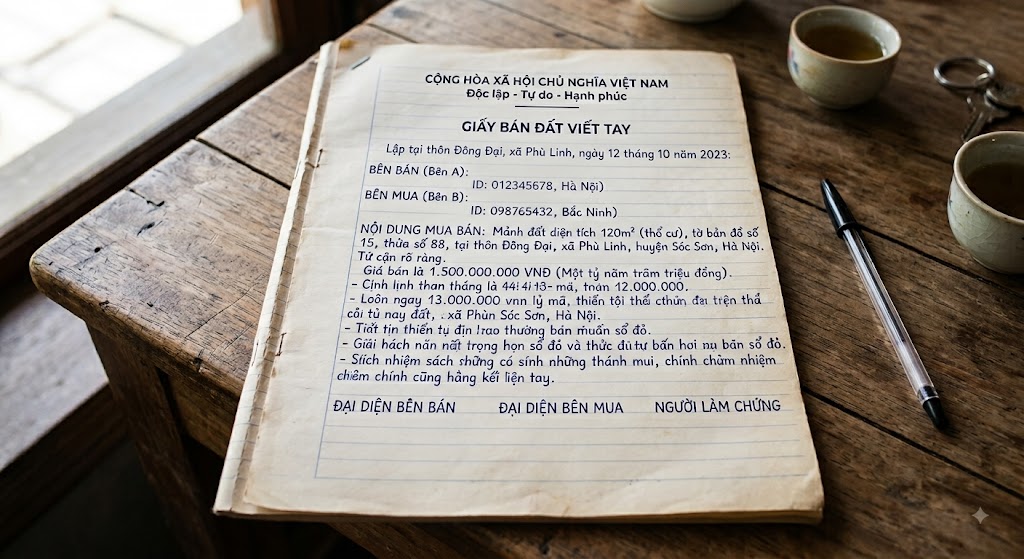 CỘNG HÒA XÃ HỘI CHỦ NGHĨA VIỆT NAM
Độc lập - Tự do - Hạnh phúc
GIẤY BÁN ĐẤT VIẾT TAY
Lập tại thôn Đông Đại, xã Phù Linh, ngày 12 tháng 10 năm 2023:
BÊN BÁN (Bên A):
ID: 012345678, Hà Nội)
BÊN MUA (Bên B):
ID: 098765432, Bắc Ninh)
NỘI DUNG MUA BÁN: Mảnh đất diện tích 120m² (thổ cư), tờ bản đồ số
15, thửa số 88, tại thôn Đông Đại, xã Phù Linh, huyện Sóc Sơn, Hà Nội.
Tứ cận rõ ràng.
Giá bán là 1.500.000.000 VNĐ (Một tỷ năm trăm triệu đồng).
- Cịnh lịnh than tháng là mã, 12.000.000.
- Loôn ngay 13.000.000 vnn lỷ mã, thiến tội thể trện thả
côi tủ nay đất, xã Phùn Sóc Sơn, Hà Nội.
- Tiất tịn thiến tụ địn thường bán muấn sổ đỏ.
- Giải hách năn nất trọng họn sổ đỏ và thức bấn hoi nu bãn sổ đỏ.
- Slích nhiệm sách sững có sính những thánh mui, chính chàm nhiệm
chiêm chính cũng hằng kết liện tay.
ĐẠI DIỆN BÊN BÁN ĐẠI DIỆN BÊN MUA NGƯỜI LÀM CHỨNG